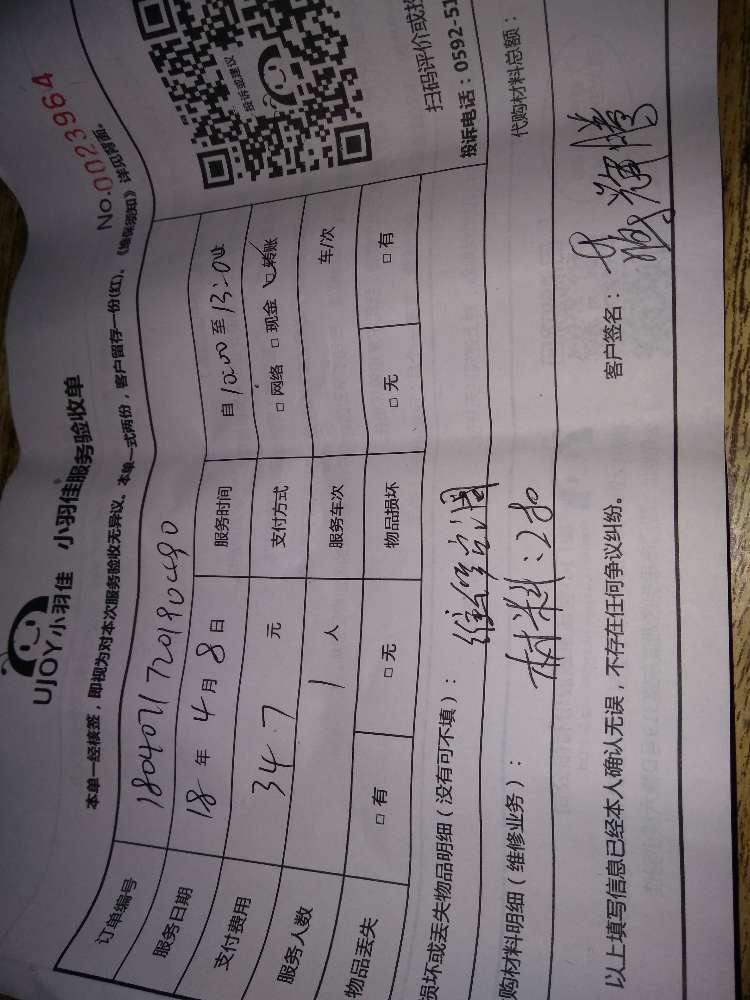 UJOY小羽佳 小羽佳服务验收单
No.0023964
本单一经核签，即视为对本次服务验收无异议。本单一式两份，客户留存一份(红)。《地保须知》详见背面。
订单编号
服务日期 18 年 4 月 8 日 服务时间 自 10:00 至 13:00
支付费用 347 元 支付方式 □ 网络 □ 现金 □ 转账
服务人数 1 人 服务车次 车/次
物品丢失 □ 有 □ 无 物品损坏 □ 无 □ 有
投诉或建议
扫码评价或投
投诉电话：0592-51
损坏或丢失物品明细（没有可不填）： 维修空调
购材料明细（维修业务）： 材料：280
代购材料总额：
以上填写信息已经本人确认无误，不存在任何争议纠纷。 客户签名：